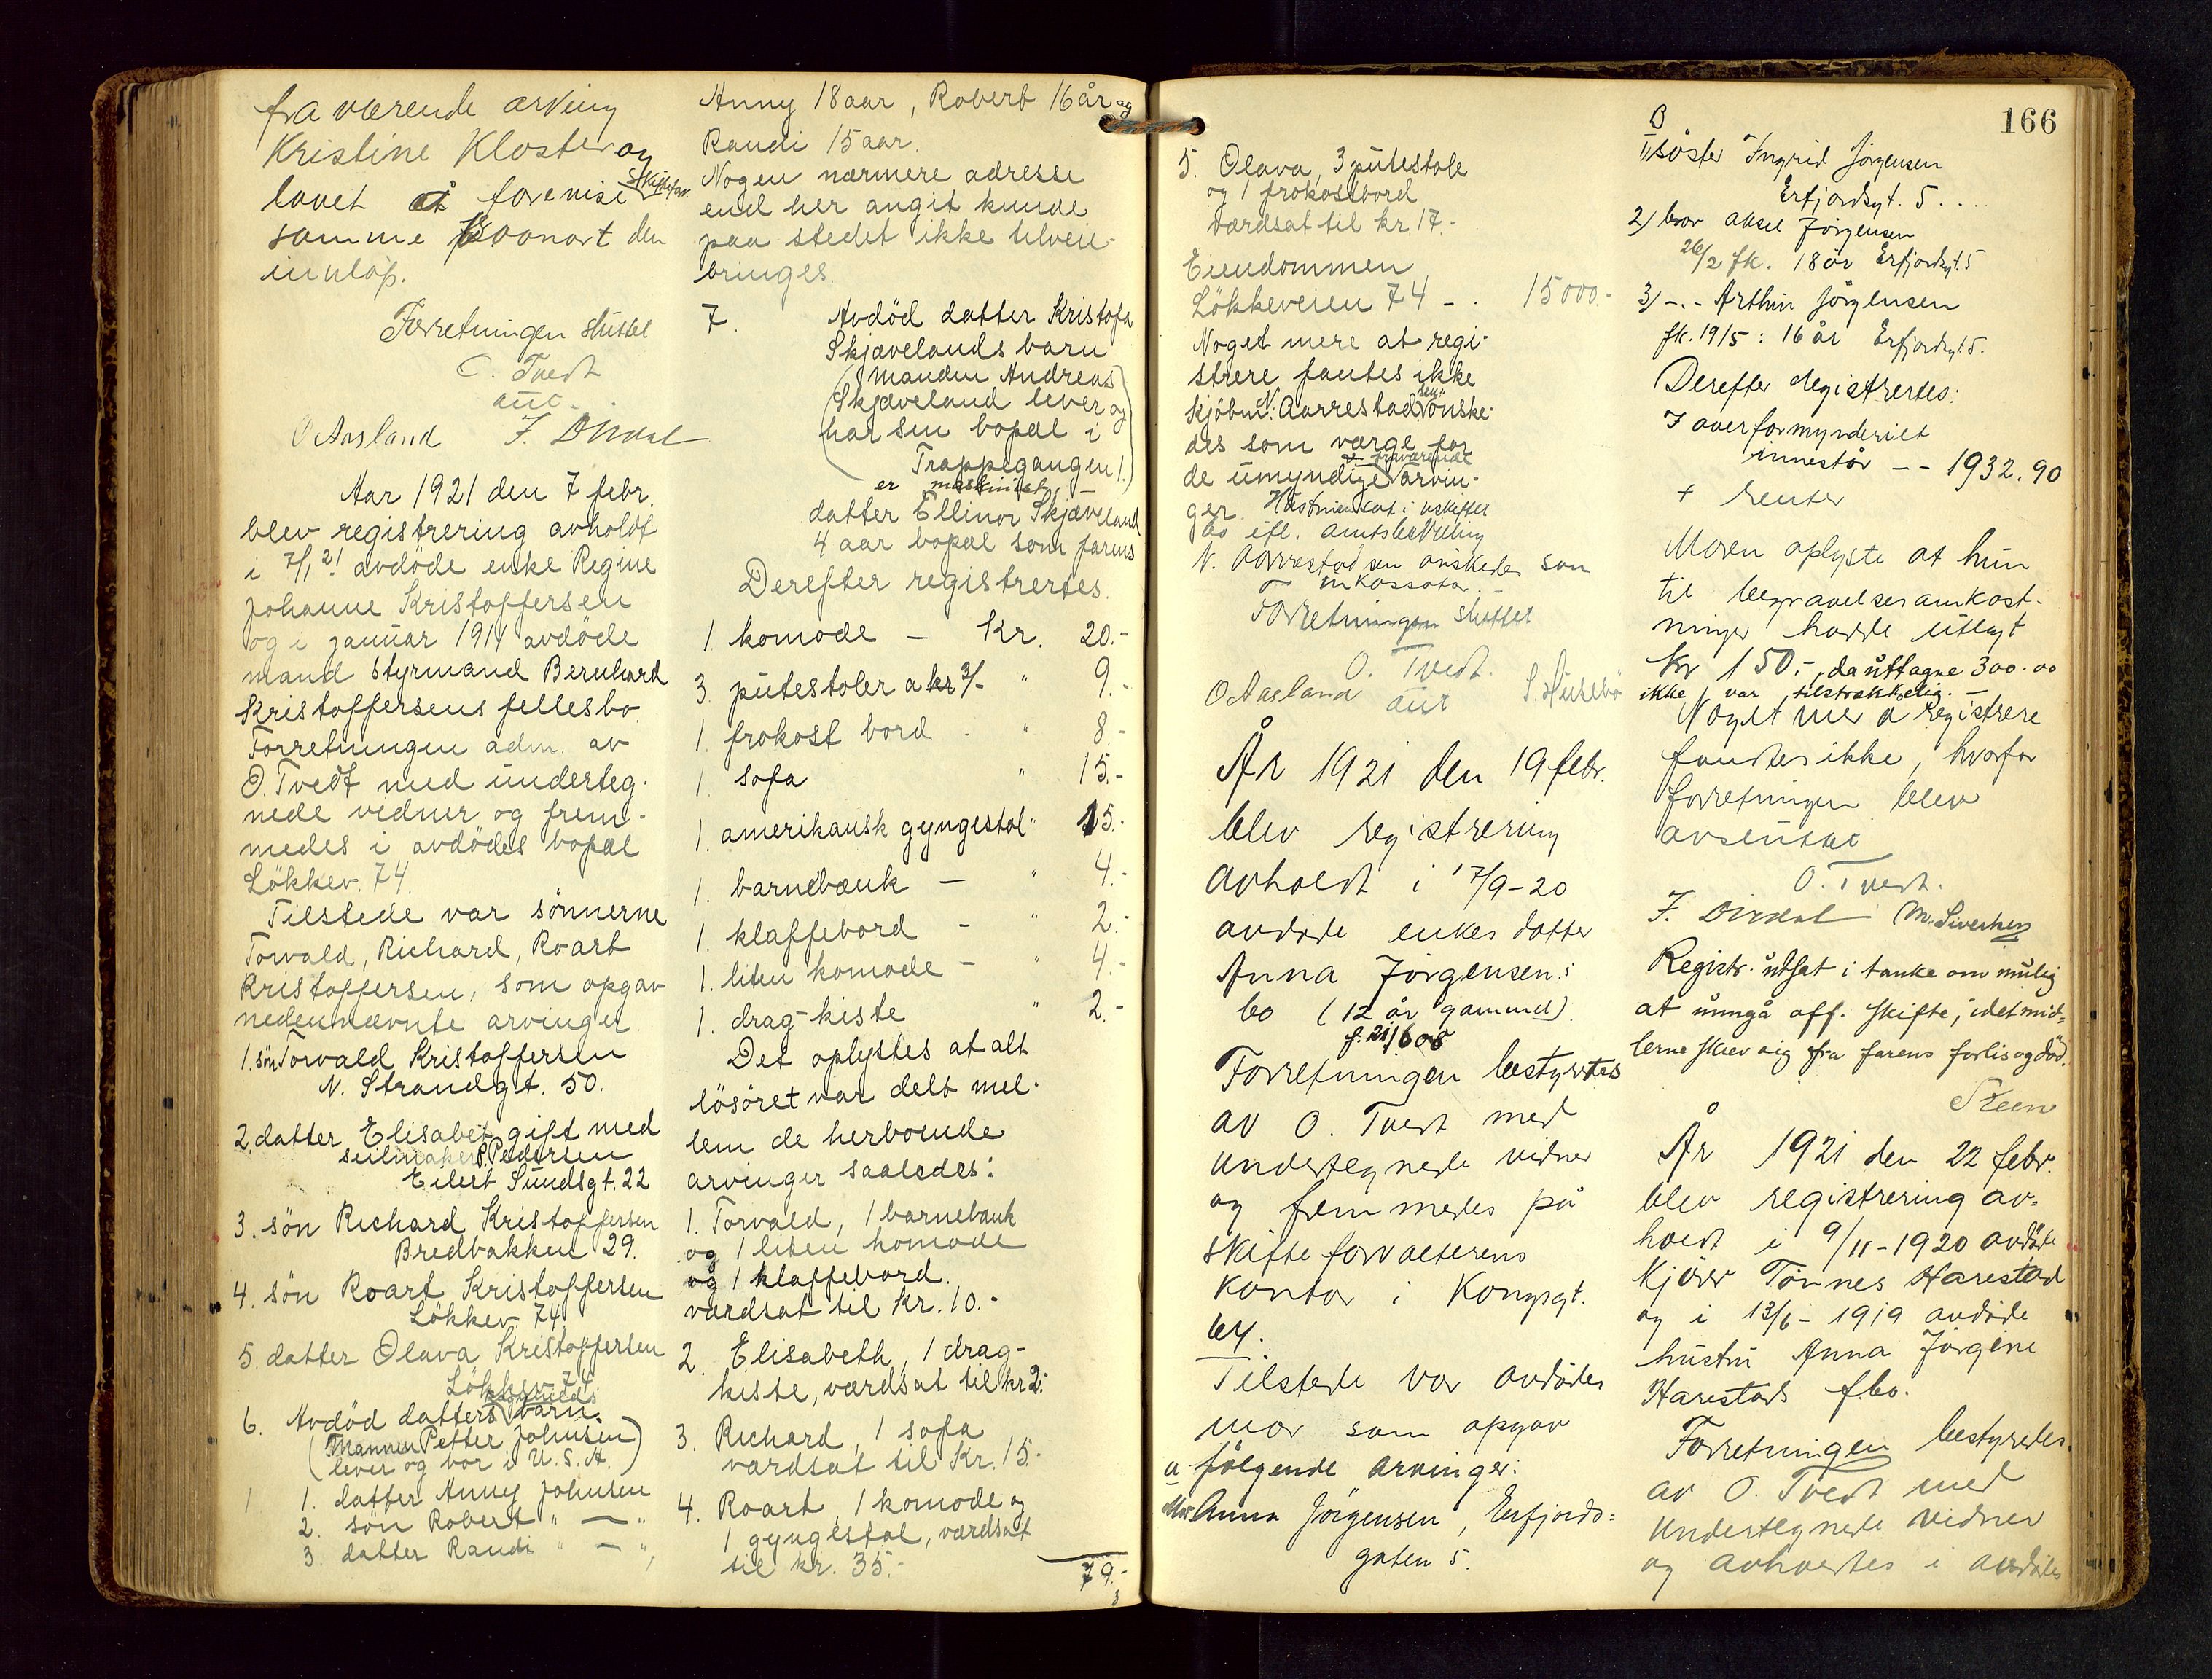 fra værende arving
Kristine Kloster og
lovet at forevise skiftefor.
samme saasnart den
innløp.
Forretningen sluttet
O. Tvedt
aut.
O Aasland F. Dirdal
Aar 1921 den 7 febr.
blev registrering avholdt
i 7/1 21 avdöde enke Regine
Johanne Kristoffersen
og i januar 1911 avdöde
mand Styrmand Bernhard
Kristoffersens fellesbo.
Forretningen adm. av
O. Tvedt med underteg-
nede vidner og frem-
medes i avdödes bopæl
Lökkev. 74.
Tilstede var sönnerne
Torvald, Richard, Roart
Kristoffersen, som opgav
nedennævnte arvinger
1. sön Torvald Kristoffersen
N. Strandgt. 50.
2. datter Elisabet gift med
seilmaker P. Pedersen
Eilert Sundsgt. 22
3. sön Richard Kristoffersen
Bredbakken 29.
4. sön Roart Kristoffersen
Lökkev. 74.
5. datter Olava Kristoffersen
Lökkev. 74
6. Avdöd datters barn.
(Mannen Petter Johnsen
lever og bor i U.S.A.)
1. datter Anny Johnsen
2. sön Robert " — "
3. datter Randi " — "
Anny 18 aar, Robert 16 år og
Randi 15 aar.
Nogen nærmere adresse
end her angit kunde
paa stedet ikke tilveie-
bringes.
7. Avdöd datter Kristofa
Skjævelands barn
(manden Andreas
Skjæveland lever og
har sin bopæl i
Trappegangen 1.)
er maskinist
datter Ellinor Skjæveland
4 aar bopæl som farens
Derefter registrertes.
1 komode — Kr. 20.-
3 putestoler a kr 3/- " 9.-
1. frokost bord - " 8.-
1 sofa " 15.-
1. amerikansk gyngestol " 15.-
1. barnebænk — " 4.-
1. klaffebord - " 2.-
1. liten komode — " 4.-
1. drag-kiste " 2.-
Det oplystes at alt
lösöret var delt mel-
lem de herboende
arvinger saaledes:
1. Torvald, 1 barnebænk
og 1 liten komode
og 1 klaffebord.
værdsat til kr. 10.-
2. Elisabeth, 1 drag-
kiste, værdsat til kr 2.-
3. Richard, 1 sofa
værdsat til Kr. 15.-
4. Roart, 1 komode og
1 gyngestol, værdsat
til kr. 35.-
79.-
166
5. Olava, 3 putestole
og 1 frokostbord
værdsat til kr. 17.-
Eiendommen
Lökkeveien 74 - . 15000.-
Noget mere at regi-
strere fantes ikke
Kjöbm. N. Aarrestad sen. önske-
des som værge for
de umyndige og fraværende arvin-
ger. Hustruen sat i uskiftet
bo ifl. amtsbevilling
N. Aarrestad sen önskedes som
inkassator.
Forretningen sluttet
O. Tvedt.
O Aasland aut S. Husebö
År 1921 den 19 febr.
blev registrering
avholdt i 17/9-20
avdöde enkes datter
Anna Jörgensens
bo (12 år gammel)
f. 21/6 08
Forretningen bestyrtes
av O. Tvedt med
undertegnede vidner
og fremmedes på
skifteforvalterens
kontor i Kongsgt.
64.
Tilstede var avdödes
mor som opgav
fölgende arvinger:
a
Mor Anna Jörgensen, Erfjords=
gaten 5.
B
1) söster Ingrid Jörgensen
Erfjordsgt. 5....
2) bror Aksel Jörgensen
26/2 fk. 18 år Erfjordsgt. 5
3) -.- Arthur Jörgensen
fk. 19/5: 16 år Erfjordsgt 5.
Derefter registrertes:
I overformynderiet
innestår -- 1932.90
+ renter
Moren oplyste at hun
til begravelsesomkost-
ninger hadde utlagt
Kr 150.-, da uttagne 300.00
ikke var tilstrekkelig.-
Noget mer a registrere
fandtes ikke, hvorfor
forretningen blev
avsluttet
O. Tvedt.
F. Dirdal M. Sivertsen
Registr. utsat i tanke om mulig
at unngå off. skifte, idet mid=
lerne skrev sig fra farens forlis og död.
Steen
År 1921 den 22 febr.
blev registrering av=
holdt i 9/11-1920 avdöde
kjörer Tönnes Harestad
og i 13/6-1919 avdöde
hustru Anna Jörgine
Harestads f.bo.
Forretningen bestyredes
av O. Tvedt med
undertegnede vidner
og avholdtes i avdödes